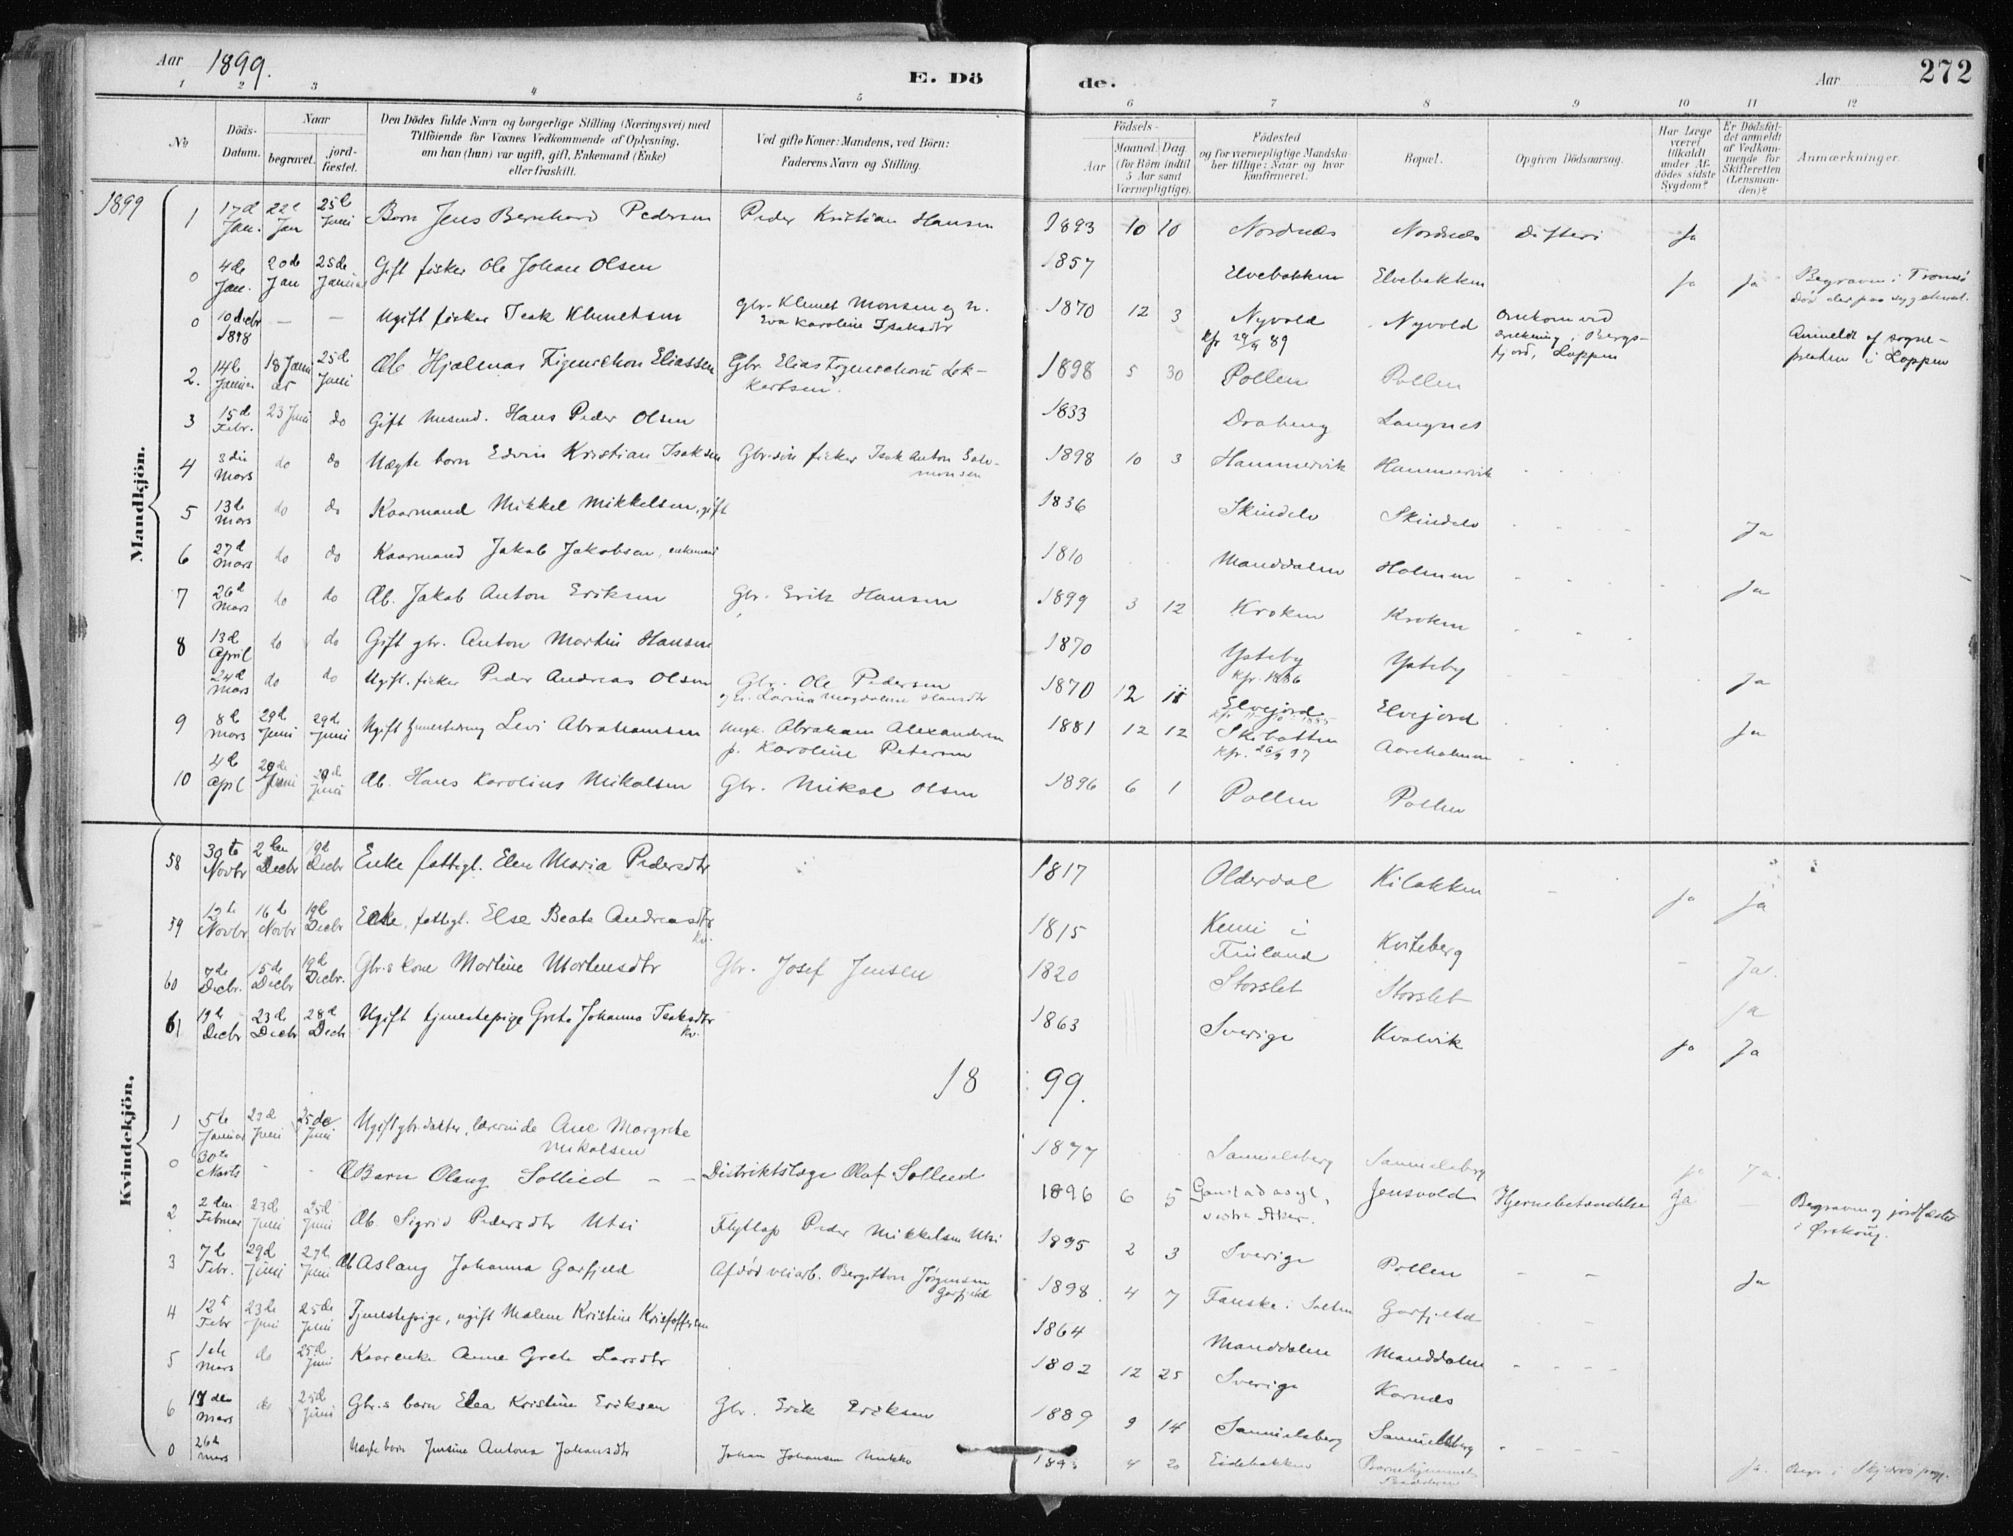 Aar 1899.
E. Dö
de.
Aar
272
1 2 3 4 5
6 7 8 9 10 11 12
No
Döds-
Datum.
Naar
begravet.
jord-
fæstet.
Den Dödes fulde Navn og borgerlige Stilling (Næringsvei) med
Tilföiende for Voxnes Vedkommende af Oplysning,
om han (hun) var ugift, gift, Enkemand (Enke)
eller fraskilt.
Ved gifte Koner: Mandens, ved Börn:
Faderens Navn og Stilling.
Födsels-
Aar
Maaned.
Dag.
(for Börn indtil
5 Aar samt
Værnepligtige).
Födested
og for værnepligtige Mandska-
ber tillige: Naar og hvor
konfirmeret.
Bopæl.
Opgiven Dödsaarsag.
Har Læge
været
tilkaldt
under Af-
dödes sidste
Sygdom?
Er Dödsfal-
det anmeldt
af Vedkom-
mende for
Skifteretten
(Lensman-
den)?
Anmærkninger.
Mandkjön.
1899 1 17d Jan. 22d Jan 25d Juni Barn Jens Bernhard Pedersen Peder Kristian Hansen 1893 10 10 Nordnes Nordnes Difteri Ja
0 4de Jan. 20de Jan 25de Januar Gift fisker Ole Johan Olsen 1857 Elvebakken Elvebakken Ja Ja Begraven i Tromsö
död der paa sygehuset.
0 10 decbr 1898 — — Ugift fisker Isak Klemetsen Gbr. Klemet Monsen og h.
Eva Karoline Isaksdtr 1870 12 3 Nyvold Nyvold Omkom ved
kfr 89 drukning i Bergs-
fjord, Loppen Anmeldt af sogne-
presten i Loppen
2. 14de Januar 18 Januar 25d Juni Æb. Hjalmar Figenschou Eliassen Gbr. Elias Figenschou 1898 5 30 Pollen Pollen
3 15d Febr. 23 Juni do Gift Hans Peder Olsen 1833 Draberg Langnes
4 3die Mars do do Uægte barn Edvin Kristian Isaksen Gbr.sön fisker Isak Anton Salo-
monsen 1898 10 3 Hammervik Hammervik
5 13de Mars do do Kaarmand Mikkel Mikkelsen, gift 1836 Skindelv Skindelv Ja
6 27d Mars do do Kaarmand Jakob Jakobsen, enkemand 1810 Manddalen Holmen Ja
7 26d Mars do do Æb. Jakob Anton Eriksen Gbr. Erik Hansen 1899 3 12 Kroken Kroken
8 13d April do do Gift gbr. Anton Martin Hansen 1870 Ysteby Ysteby Ja
24d Mars do do Ugift. fisker Peder Andreas Olsen Gbr. Ole Pedersen
Magdalene Hansdtr 1870 12 11 Elvejord Elvejord Ja
9 8de Mars 29de Juni 29de Juni Ugift Levi Abrahamsen Ungk. Abraham Alexandersen
p. Karoline Petersen 1881 12 12 Skibotten Aarsholmen
10 4de April 29de Juni 29de Juni Æb. Hans Karolius Mikalsen Gbr. Mikal Olsen 1896 6 1 Pollen Pollen
Kvindekjön.
58 30te Novbr 2den Decbr 19d Decbr Enke fattigl. Elen Maria Pedersdtr 1817 Olderdal Kilbakken Ja Ja
59 12te Novbr 16de Novbr 19de Decbr Enke, fattigl. Else Beate Andreasdtr
kv. 1815 Kemi i
Finland Kviteberg — Ja.
60 7de Decbr. 15de Decbr 19de Decbr. Gbr.s kone Martine Mortensdtr Gbr. Josef Jensen 1820 Storslet Storslet Ja
61 19de Decbr 23de Decbr 28d Decbr Ugift tjenestepige Grete Johanna Isaksdtr
kv. 1863 Sverige Kvalvik Ja Ja
18 99.
1 5te Januar 23d Juni 25de Juni Ugift gbr.datter, lærerinde Ane Margrete
Mikalsen 1877 Samuelsberg Samuelsberg Ja Ja.
0 30te Marts - - Æ Barn Olaug Sollied — — Distriktslæge Olaf Sollied 1896 6 5 Gaustad asyl,
vestre Aker. Jensvold Hjernebetændelse Ja — Begraven og jordfæstet
i Ørskoug.
2 2den Februar 23d Juni 25d Juni Æb. Sigrid Pedersdtr Utsi Flytlap Peder Mikkelsen Utsi 1895 2 3 Sverige Pollen — — Ja
3 7de Febr. 29d Juni 29de Juni Æb Aslaug Johanna Garfjeld Afdöd veiarb. Bergitton Jørgensen
Garfjeld 1898 4 7 Fauske i Salten Garfjeld
4 12te Febr 23de Juni 25de Juni Tjenestepige, ugift Malene Kristine Kristoffersen 1864 Manddalen Manddalen
5 1ste Mars do 25d Juni Kaarenke Anne Grete Larsdtr 1802 12 25 Sverige Kornæs
6 17den Mars do 25d Juni Gbr.s barn Elea Kristine Eriksen Gbr. Erik Eriksen 1889 9 14 Samuelsberg Samuelsberg
0 26de Mars Uægte barn Jensine Antona Johansdtr Johan Johansen Mukko 4 20 Eidebakken Barnehjemmet Ja. Begr. i Skjervö